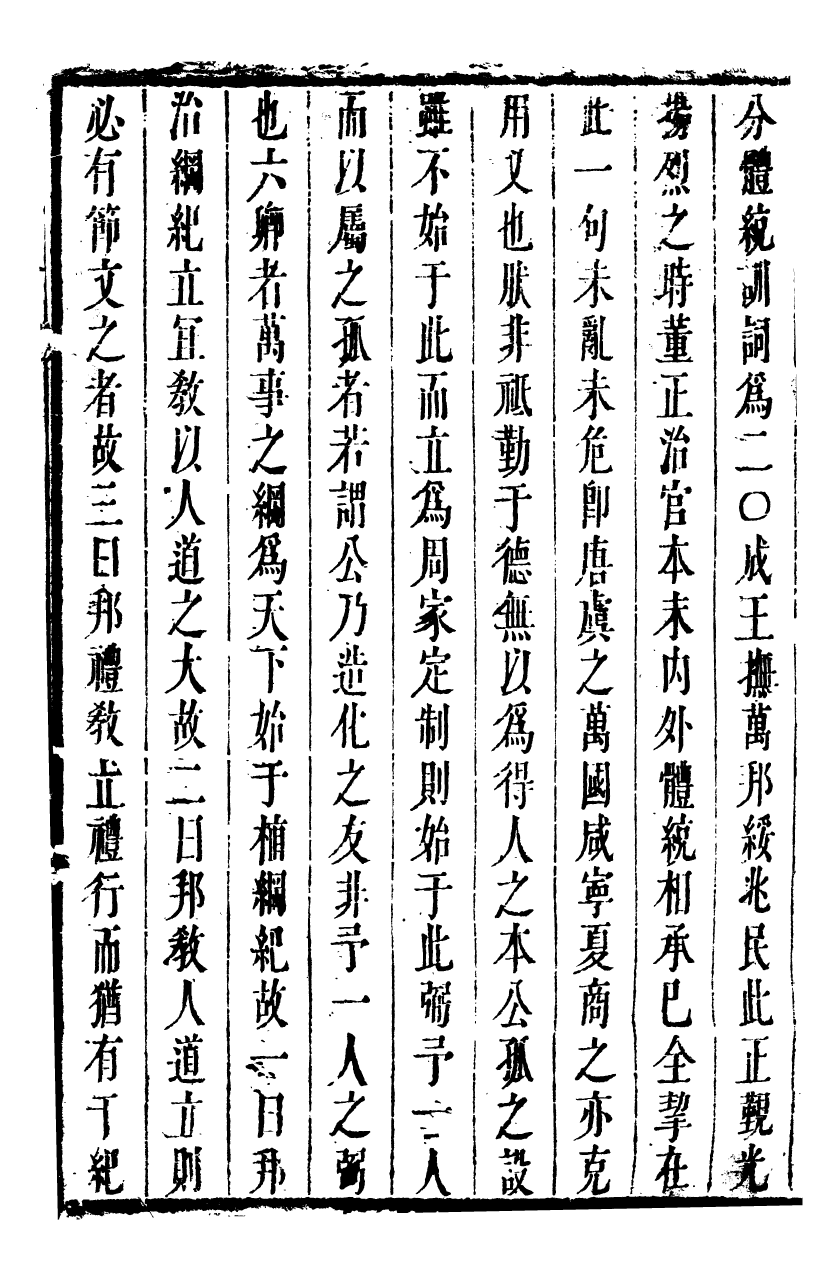 分體統訓詞爲二〇成王撫萬邦綏兆民此正覲光
揚烈之時董正治官本末內外體統相承已全挈在
此一句未亂未危卽唐虞之萬國咸寧夏商之亦克
用乂也然非祗勤于德無以爲得人之本公孤之設
雖不始于此而立爲周家定制則始于此弼予一人
而以屬之孤者若謂公乃造化之友非予一人之弼
也六卿者萬事之綱爲天下始于植綱紀故一曰邦
治綱紀立宜敎以人道之大故二曰邦敎人道立則
必有節文之者故三曰邦禮敎立禮行而猶有干紀